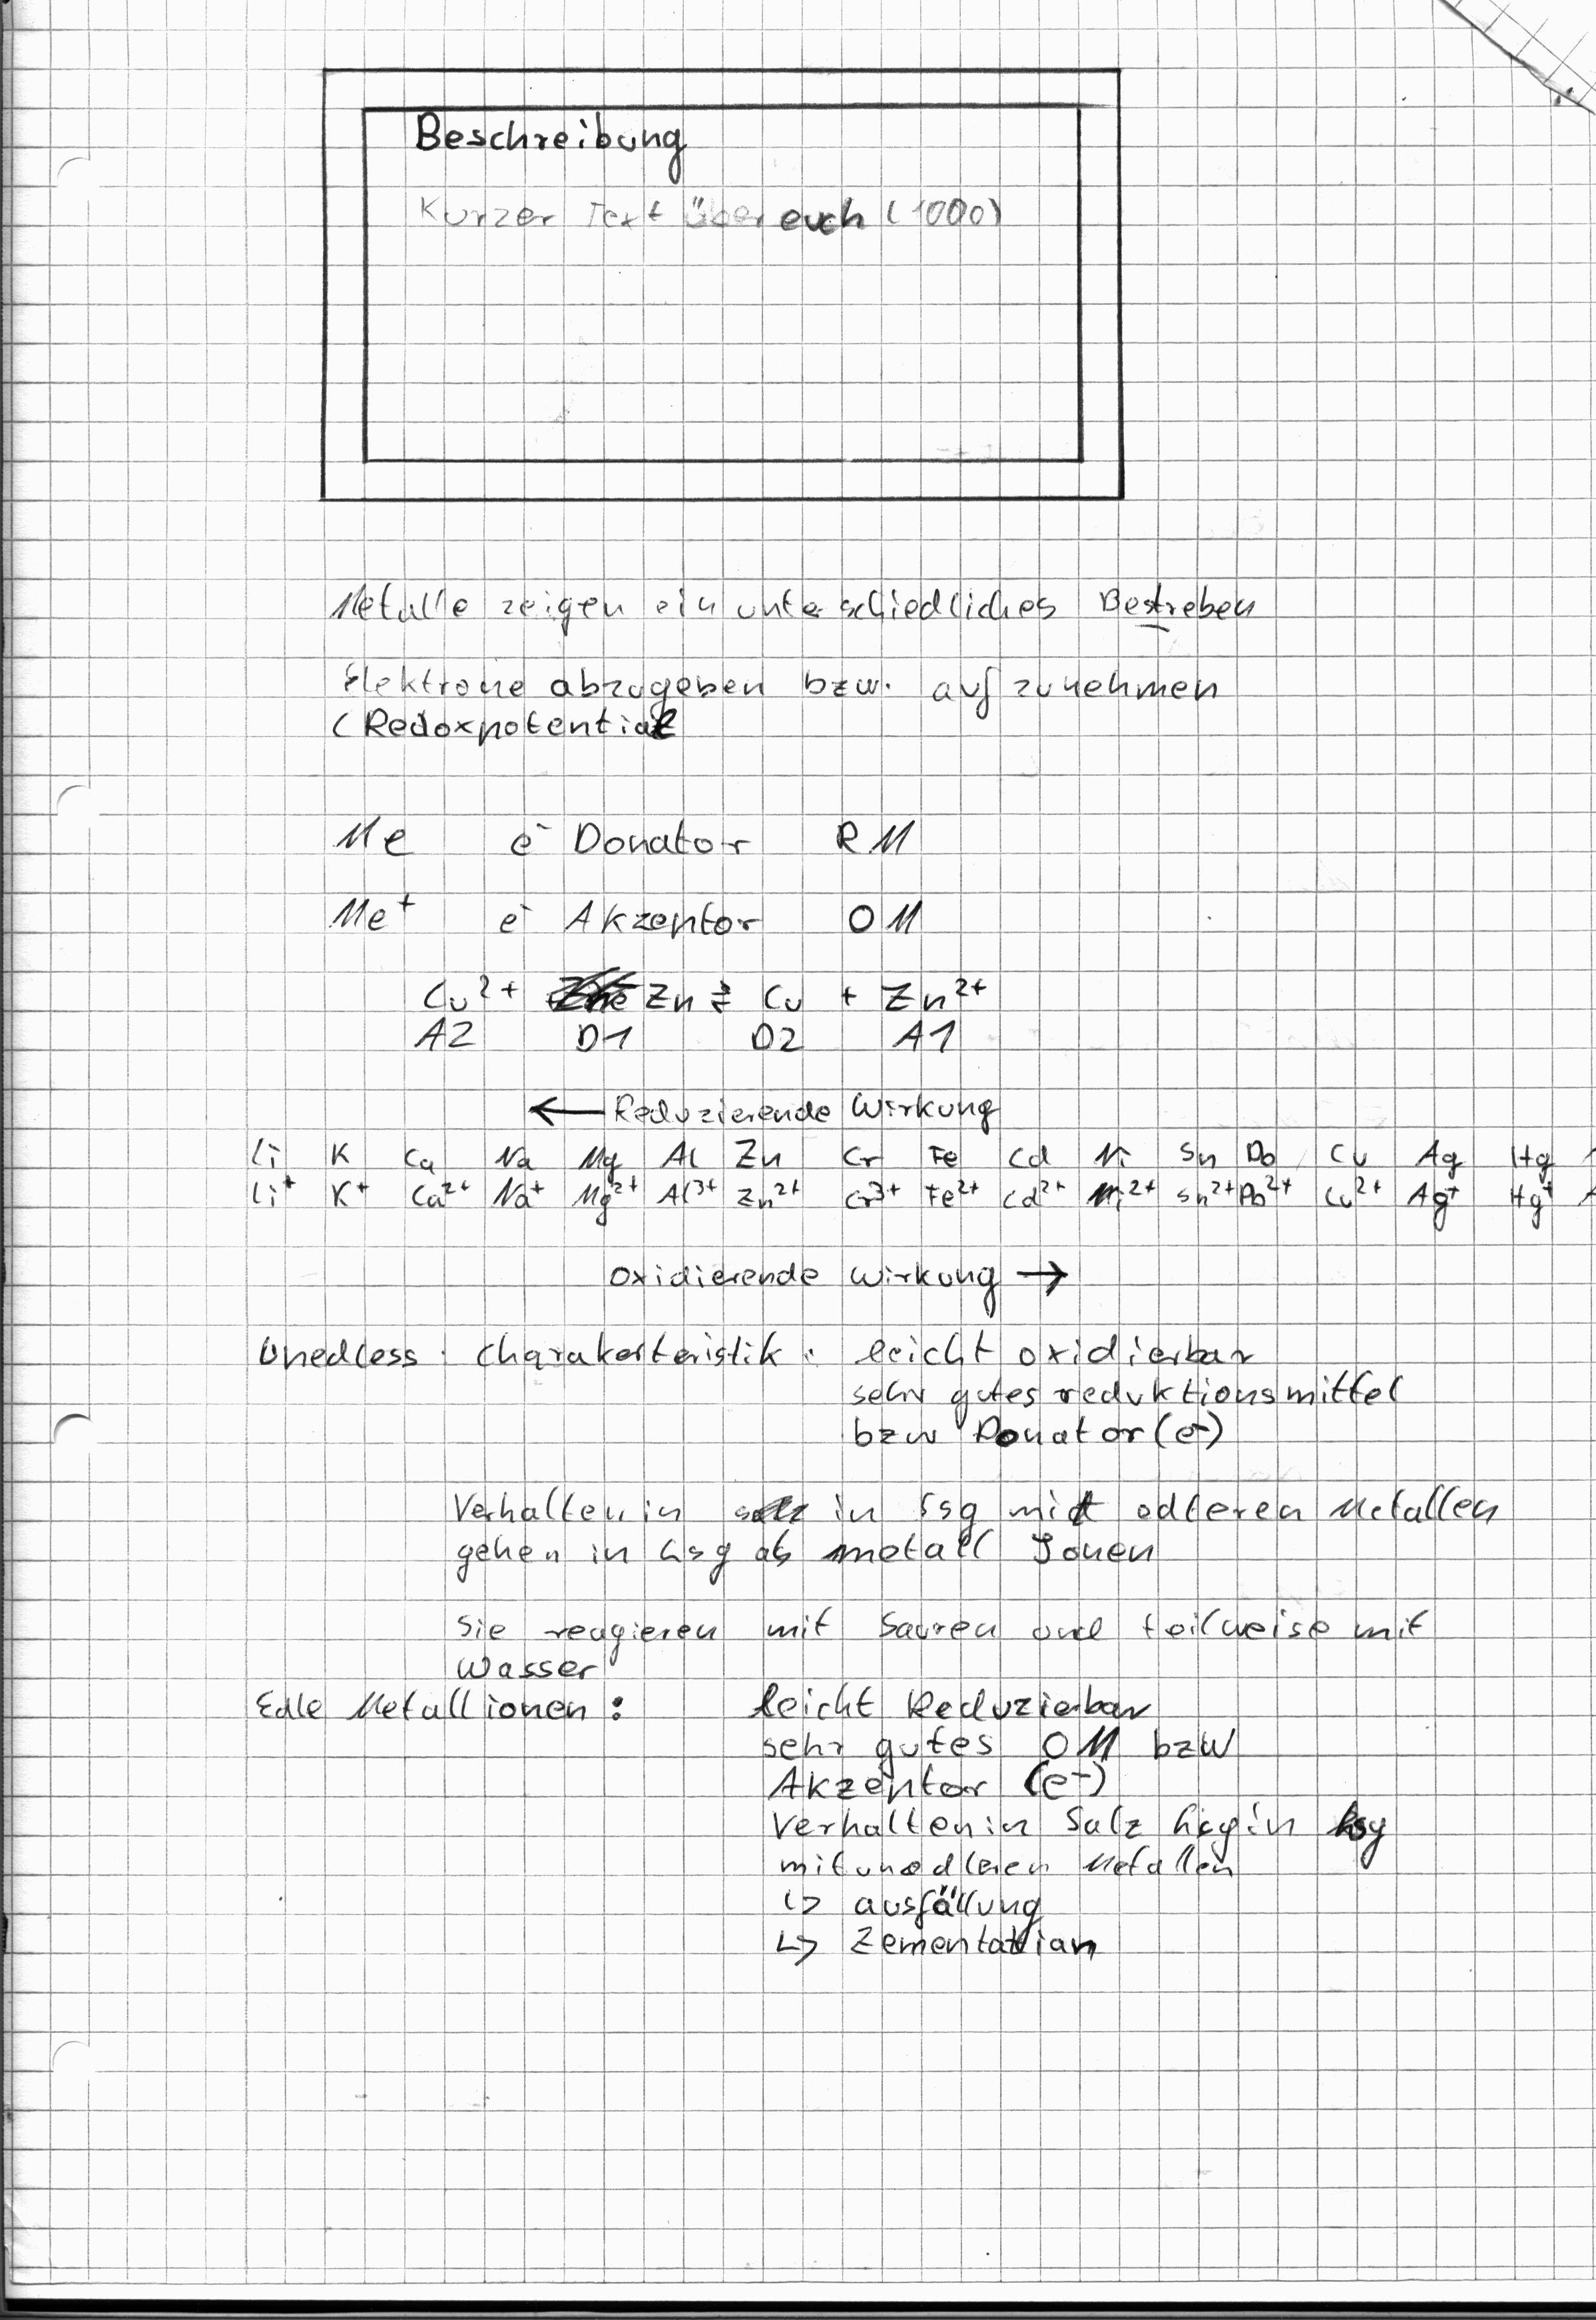 Beschreibung
Kurzer Text über euch (1000)
Metalle zeigen ein unterschiedliches Bestreben
Elektrone abzugeben bzw. aufzunehmen
(Redoxpotential
Me e⁻ Donator RM
Me⁺ e⁻ Akzeptor OM
Cu²⁺ Zn ⇄ Cu + Zn²⁺
A2 D1 D2 A1
← Reduzierende Wirkung
Li K Ca Na Mg Al Zn Cr Fe Cd Ni Sn Pb Cu Ag Hg
Li⁺ K⁺ Ca²⁺ Na⁺ Mg²⁺ Al³⁺ Zn²⁺ Cr³⁺ Fe²⁺ Cd²⁺ Ni²⁺ Sn²⁺ Pb²⁺ Cu²⁺ Ag⁺ Hg⁺
oxidierende Wirkung →
leicht oxidierbar
sehr gutes reduktionsmittel
bzw Donator (e⁻)
Verhalten in in Lsg mit edleren Metallen
gehen in Lsg als metall Ionen
Sie reagieren mit Säuren und teilweise mit
Wasser
Edle Metallionen: leicht Reduzierbar
sehr gutes OM bzw
Akzeptor (e⁻)
Verhalten in Salz Lsg in Lsg
mit unedleren Metallen
↳ ausfällung
↳ Zementation